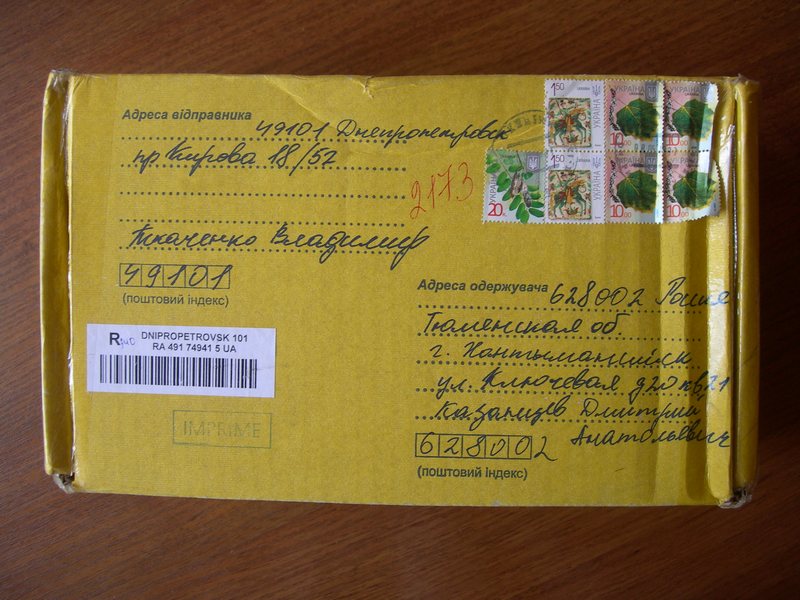 Адреса відправника 49101 Днепропетровск
пр Кирова 18/52
Ткаченко Владимир
49101
(поштовий індекс)
R
DNIPROPETROVSK 101
RA 491 74941 5 UA
IMPRIME
2173
1.50 УКРАЇНА
1.50 УКРАЇНА
10.00
10.00
10.00
10.00
20
Адреса одержувача 628002
Тюменская об.
г. Хантымансийск
ул. Ключевая д20 кв21
Казанцев Дмитрий
Анатольевич
628002
(поштовий індекс)